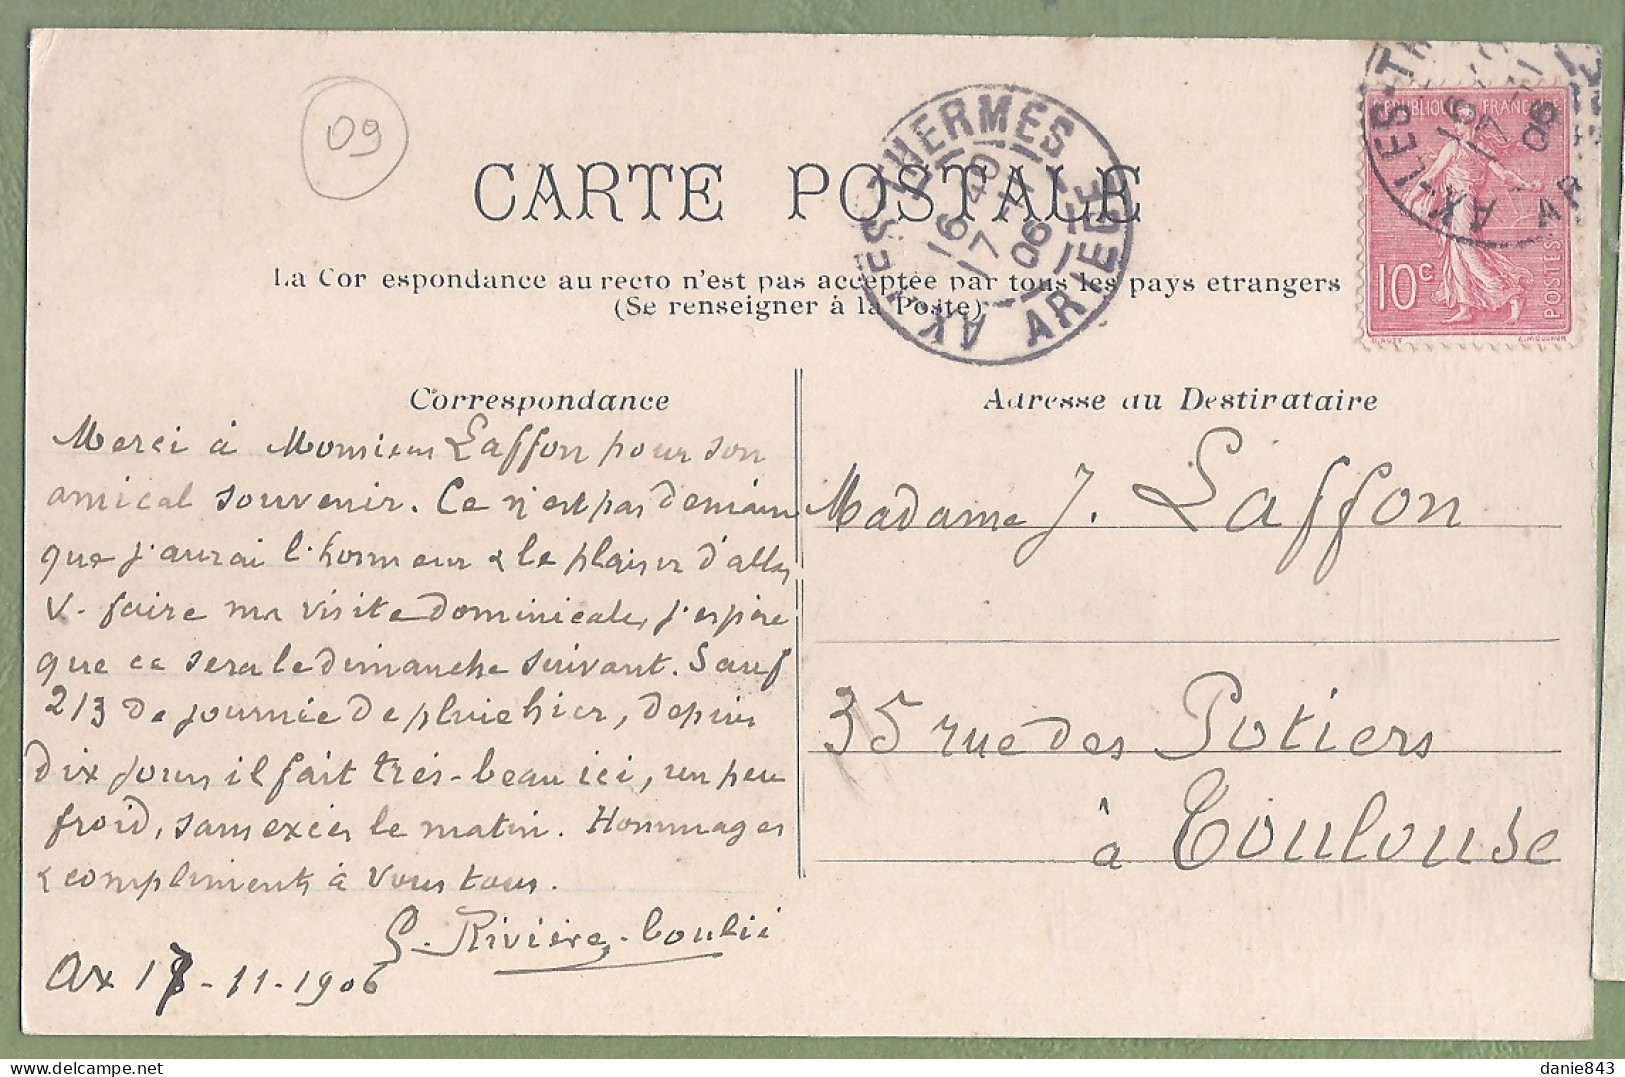 09
CARTE POSTALE
La Cor espondance au recto n'est pas acceptée par tous les pays etrangers
(Se renseigner à la Poste)
AX-LES-THERMES
ARIEGE
16 40
17 11
06
REPUBLIQUE FRANÇAISE
10c
POSTES
Correspondance
Adresse du Destirataire
Merci à Monsieur Laffon pour son
amical souvenir. Ce n'est pas demain
que j'aurai l'honneur & le plaisir d'aller
V. faire ma visite dominicale, j'espère
que ce sera le dimanche suivant. Sauf
2/3 de journée de pluie hier, depuis
dix jours il fait très-beau ici, un peu
froid, sans excès le matin. Hommages
& compliments à vous tous.
G. Rivière-Coulié
Ax 17-11-1906
Madame J. Laffon
35 rue des Potiers
à Toulouse
danie843